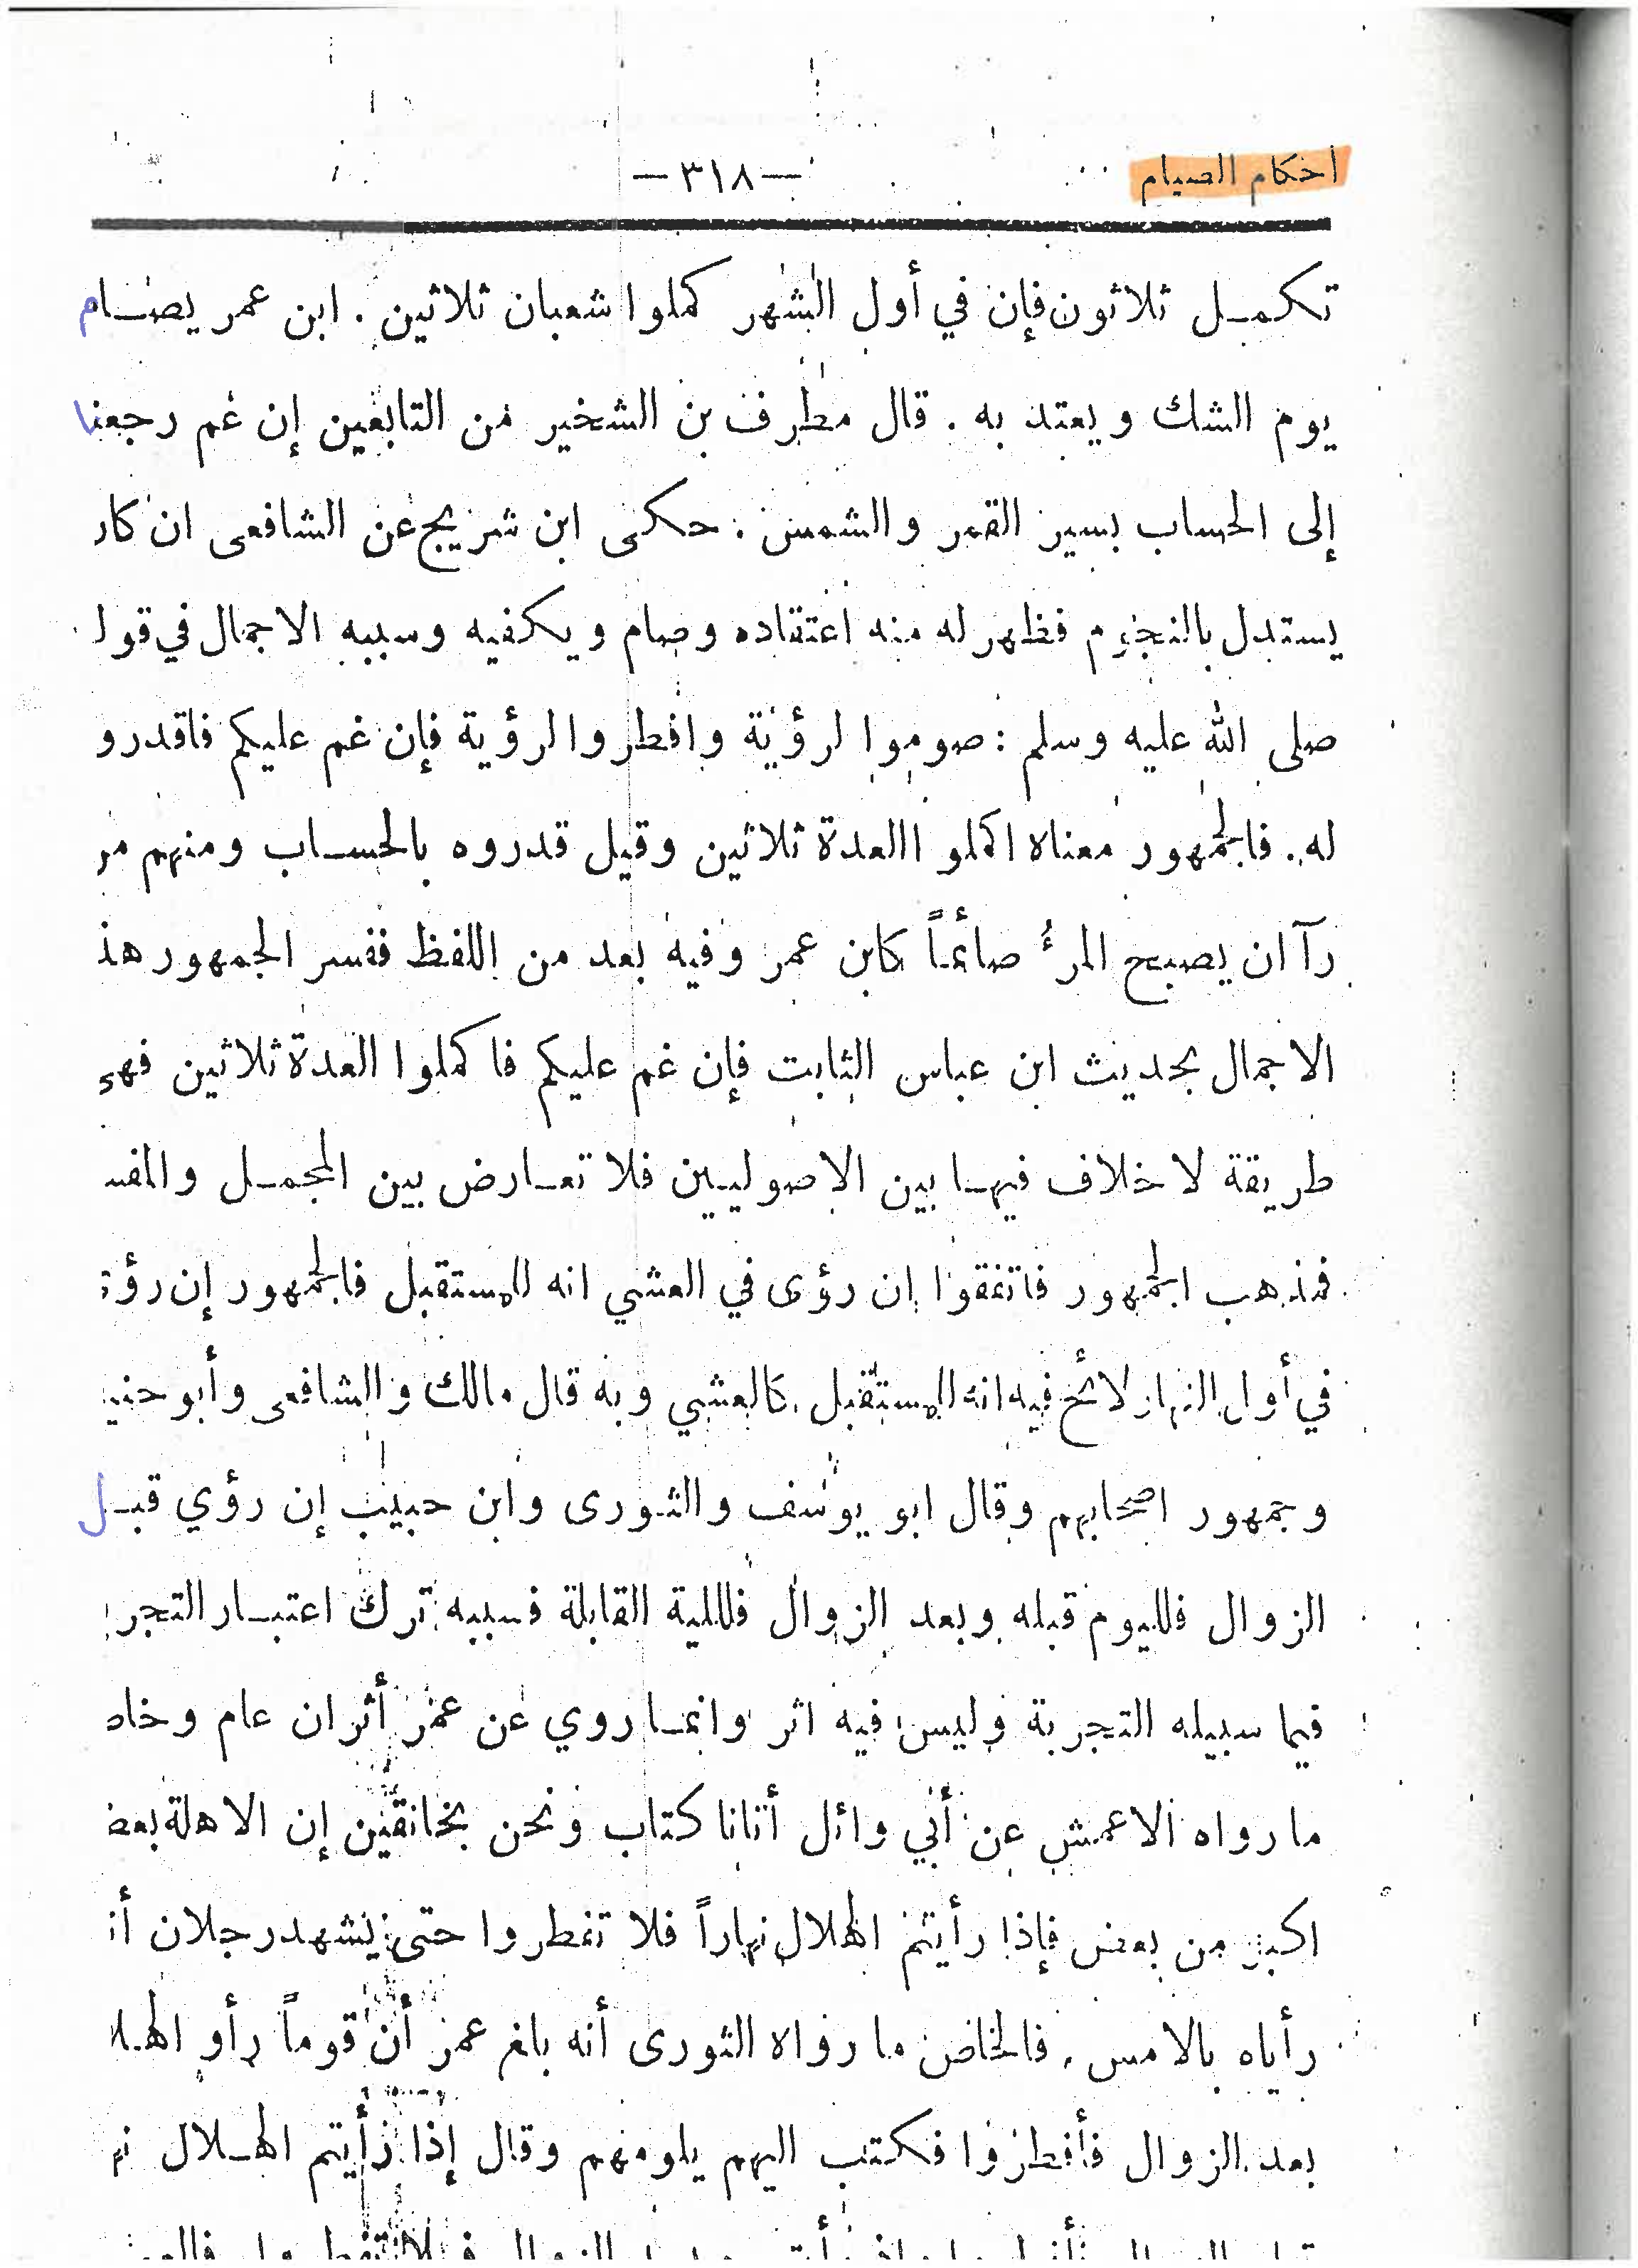 احكام الصيام
— ٣١٨ —
تكمـل ثلاثون فإن في أول الشهر كملوا شعبان ثلاثين . ابن عمر يصـام
يوم الشك ويعتد به . قال مطرف بن الشخير من التابعين إن غم رجعنا
إلى الحساب بسير القمر والشمس . حكى ابن شريح عن الشافعى ان كان
يستدل بالنجوم فظهر له منه اعتقاده وصام ويكفيه وسببه الاجمال في قول
صلى الله عليه وسلم : صوموا لرؤية وافطروا لرؤية فإن غم عليكم فاقدرو
له . فالجمهور معناه اكملو االعدة ثلاثين وقيل قدروه بالحسـاب ومنهم من
رآ ان يصبح المرأ صأئماً كابن عمر وفيه بعد من اللفظ ففسر الجمهور هذ
الاجمال بحديث ابن عباس الثابت فإن غم عليكم فاكملوا العدة ثلاثين فهي
طريقة لا خلاف فيهـا بين الاصوليـين فلا تعـارض بين المجمـل والمفسـ
فمذهب الجمهور فاتفقوا إن رؤى في العشي انه للمستقبل فالجمهور إن رؤ
في أول النهار لائح فيه انه للمستقبل كالعشي وبه قال مالك والشافعى وأبو حنيـ
وجمهور اصحابهم وقال ابو يوسف والثـورى وابن حبيب إن رؤي قبـل
الزوال فلليوم قبله وبعد الزوال فلللية القابلة فسببه ترك اعتبـار التجر
فيما سبيله التجربة وليس فيه اثر وانمـا روي عن عمر أثران عام وخاص
ما رواه الاعمش عن أبي وائل أتانا كتاب ونحن بخانقين إن الاهلة بعض
اكبر من بعض فإذا رأيتم الهلال نهاراً فلا تفطروا حتى يشهد رجلان أنـ
رأياه بالامس . فالخاص ما رواه الثورى أنه بلغ عمر أن قوماً رأو الهـلا
بعد الزوال فأفطروا فكتب اليهم يلومهم وقال إذا رأيتم الهـلال نه